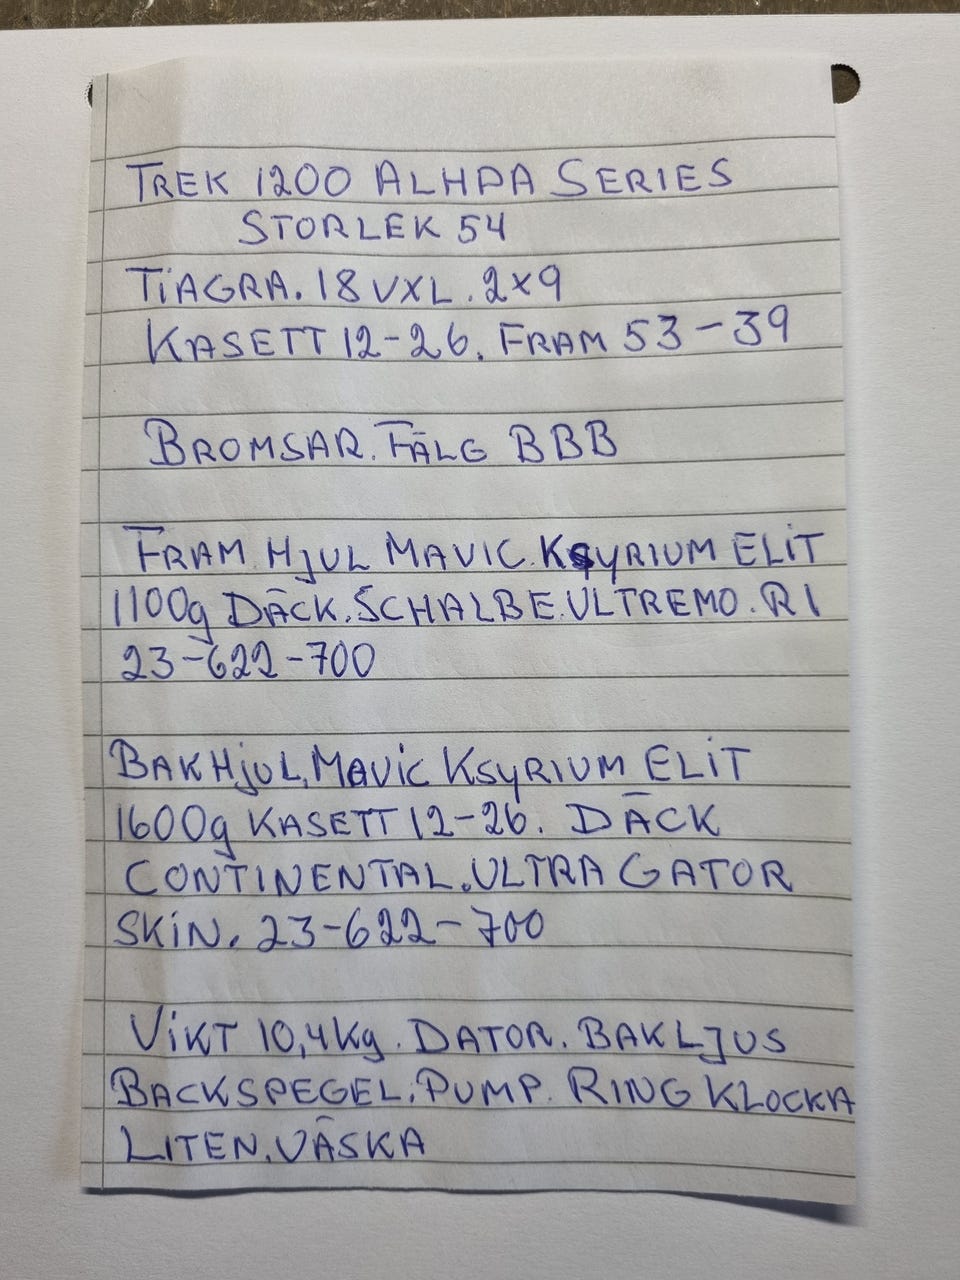 TREK 1200 ALHPA SERIES
STORLEK 54
TIAGRA. 18 VXL. 2x9
KASETT 12-26. FRAM 53-39
BROMSAR. FÄLG BBB
FRAM HJUL MAVIC. KSYRIUM ELIT
1100g DÄCK. SCHALBE. ULTREMO. R1
23-622-700
BAKHJUL, MAVIC KSYRIUM ELIT
1600g KASETT 12-26. DÄCK
CONTINENTAL. ULTRA GATOR
SKIN. 23-622-700
VIKT 10,4Kg. DATOR. BAKLJUS
BACKSPEGEL. PUMP. RING KLOCKA
LITEN. VÄSKA